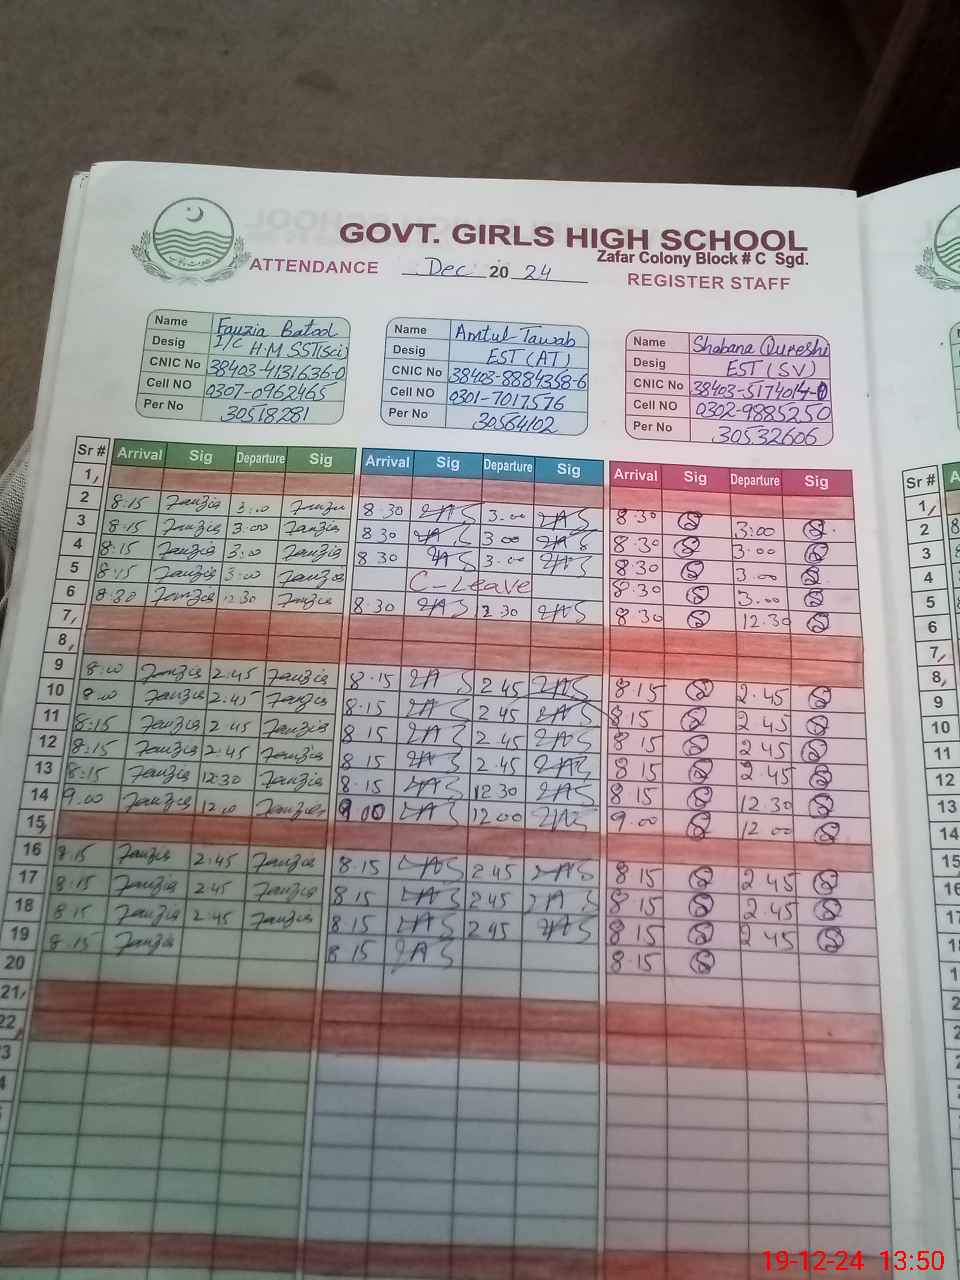 GOVT. GIRLS HIGH SCHOOL
Zafar Colony Block # C Sgd.
ATTENDANCE Dec 20 24 REGISTER STAFF
Name Fauzia Batool
Desig I/C H.M SST(sci)
CNIC No 38403-4131636-0
Cell NO 0307-0962465
Per No 30518281
Name Amtul-Tawab
Desig EST (AT)
CNIC No 38403-8884358-6
Cell NO 0301-7017576
Per No 30564102
Name Shabana Qureshi
Desig EST (SV)
CNIC No 38403-5174014-0
Cell NO 0302-9885250
Per No 30532606
Sr # Arrival Sig Departure Sig Arrival Sig Departure Sig Arrival Sig Departure Sig Sr #
1, 1,
2 8:15 Fauzia 3:00 Fauzia 8.30 3.00 8.30 3:00 2
3 8:15 Fauzia 3:00 Fauzia 8 30 3 00 8.30 3.00 3
4 8:15 Fauzia 3:00 Fauzia 8 30 3.00 8.30 3.00 4
5 8:15 Fauzia 3:00 Fauzia C-Leave 8.30 3.00 5
6 8:30 Fauzia 12:30 Fauzia 8.30 8 30 12.30 6
7, 7,
8, 8,
9 8:00 Fauzia 2:45 Fauzia 8.15 2 45 8.15 2.45 9
10 8:00 Fauzia 2:45 Fauzia 8.15 2 45 8 15 2 45 10
11 8:15 Fauzia 2:45 Fauzia 8 15 2.45 8 15 2 45 11
12 8:15 Fauzia 2:45 Fauzia 8 15 2.45 8 15 2.45 12
13 8:15 Fauzia 12:30 Fauzia 8.15 12 30 8 15 12.30 13
14 9.00 Fauzia 12.00 Fauzia 9 00 12 00 9.00 12 00 14
15, 15
16 8:15 Fauzia 2:45 Fauzia 8.15 2 45 8 15 2 45 16
17 8:15 Fauzia 2:45 Fauzia 8 15 2 45 8.15 2.45 17
18 8:15 Fauzia 2:45 Fauzia 8 15 2 45 8.15 2 45
19 8:15 Fauzia 8 15 8.15
20
21,
22,
19-12-24 13:50